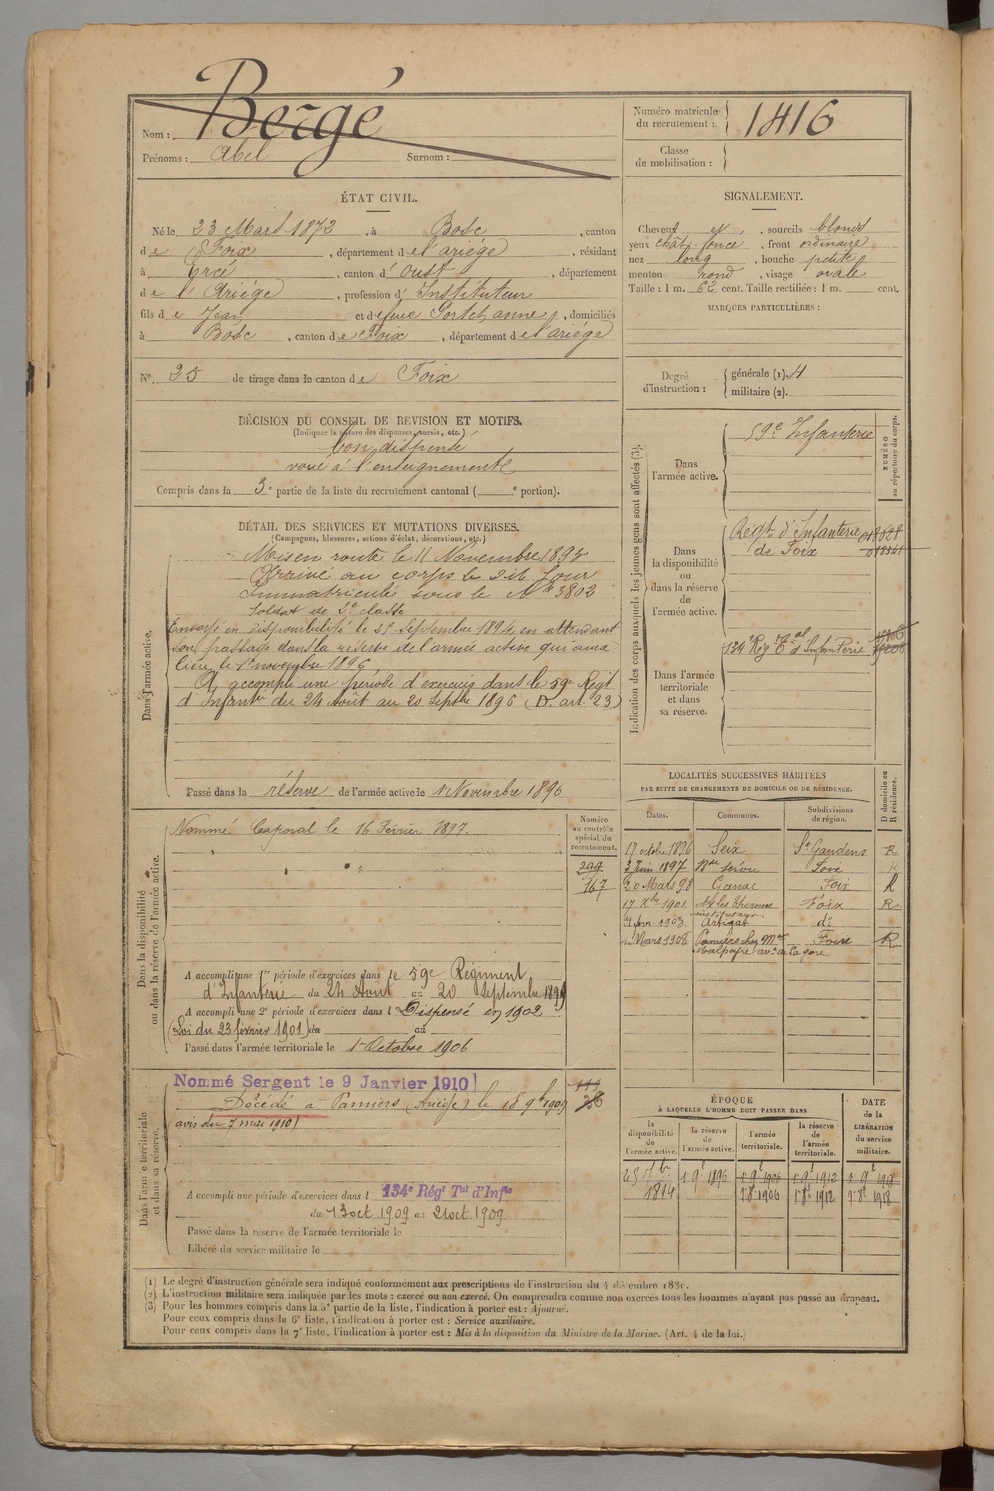 Nom : Bergé
Prénoms : Abel Surnom :
Numéro matricule du recrutement : 1416
Classe de mobilisation :
ÉTAT CIVIL.
Né le 23 Mars 1872, à Bosc, canton
de Foix, département de l'ariége, résidant
à Ercé, canton d'Oust, département
de l'Ariége, profession d'Instituteur
fils de Jean et de feue Portet anne, domiciliés
à Bosc, canton de Foix, département de l'ariége
N° 35 de tirage dans le canton de Foix
SIGNALEMENT.
Cheveux et, sourcils blonds
yeux chât. foncé, front ordinaire
nez long, bouche petite
menton rond, visage ovale
Taille : 1 m. 62 cent. Taille rectifiée : 1 m. cent.
MARQUES PARTICULIÈRES :
Degré d'instruction : générale (1). 4
militaire (2).
DÉCISION DU CONSEIL DE REVISION ET MOTIFS.
(Indiquer la nature des dispenses, sursis, etc.)
bon, dispensé
voué à l'enseignement
Compris dans la 3e partie de la liste du recrutement cantonal ( e portion).
DÉTAIL DES SERVICES ET MUTATIONS DIVERSES.
(Campagnes, blessures, actions d'éclat, décorations, etc.)
Dans l'armée active.
Mis en route le 11 Novembre 1893
Arrivé au corps le dit Jour
Immatriculé sous le N° 3802
Soldat de 2e classe
Envoyé en disponibilité le 25 Septembre 1894, en attendant
son passage dans la réserve de l'armée active qui aura
lieu le 1er novembre 1896
A accompli une période d'exercices dans le 59e Regt
d'Infantie du 24 Août au 20 Septbre 1896 (D. art. 23)
Passé dans la réserve de l'armée active le 1 Novembre 1896
Indication des corps auxquels les jeunes gens sont affectés (3).
NUMÉRO au répertoire du corps.
Dans l'armée active.
59e Infanterie
Dans la disponibilité ou dans la réserve de l'armée active.
Régt d'Infanterie
de Foix
Dans l'armée territoriale et dans sa réserve.
134e Rég Tal d'Infanterie
LOCALITÉS SUCCESSIVES HABITÉES
PAR SUITE DE CHANGEMENTS DE DOMICILE OU DE RÉSIDENCE.
Dates. Communes. Subdivisions de région. D domicile ou R résidence.
17 octobre 1896 Seix St Gaudens R
3 Juin 1897 Foix R
20 Mars 98 Ganac Foix R
17 Xbre 1901 Foix R
1903 Artigat do
Mars 1908 Pamiers chez Mme Foix R
Malpeyre ave de la gare
Dans la disponibilité ou dans la réserve de l'armée active.
Numéro au contrôle spécial du recrutement.
Nommé Caporal le 16 Février 1897.
299
167
A accompli une 1re période d'exercices dans le 59e Régiment
d'Infanterie du 24 Août au 20 Septembre 1899
A accompli une 2e période d'exercices dans l Dispensé en 1902
(Loi du 23 février 1901) du au
Passé dans l'armée territoriale le 1er Octobre 1906
Dans l'armée territoriale et dans sa réserve.
Nommé Sergent le 9 Janvier 1910
Décédé à Pamiers (Ariège) le 18 9bre 1909
avis du 7 mai 1910
A accompli une période d'exercices dans l 134e Régt Tal d'Infie
du 13 oct 1909 au 21 oct 1909
Passé dans la réserve de l'armée territoriale le
Libéré du service militaire le
ÉPOQUE
À LAQUELLE L'HOMME DOIT PASSER DANS
la disponibilité de l'armée active. la réserve de l'armée active. l'armée territoriale. la réserve de l'armée territoriale. DATE de la LIBÉRATION du service militaire.
25 7bre 1894 1 9e 1896 1 9e 1906 1 9e 1912 1 9e 1918
1 8e 1906 1 8e 1912 1 8e 1918
(1) Le degré d'instruction générale sera indiqué conformément aux prescriptions de l'instruction du 4 décembre 188
(2) L'instruction militaire sera indiquée par les mots : exercé ou non exercé. On comprendra comme non exercés tous les hommes n'ayant pas passé au drapeau.
(3) Pour les hommes compris dans la 5e partie de la liste, l'indication à porter est : Ajourné.
Pour ceux compris dans la 6e liste, l'indication à porter est : Service auxiliaire.
Pour ceux compris dans la 7e liste, l'indication à porter est : Mis à la disposition du Ministre de la Marine. (Art. 4 de la loi.)